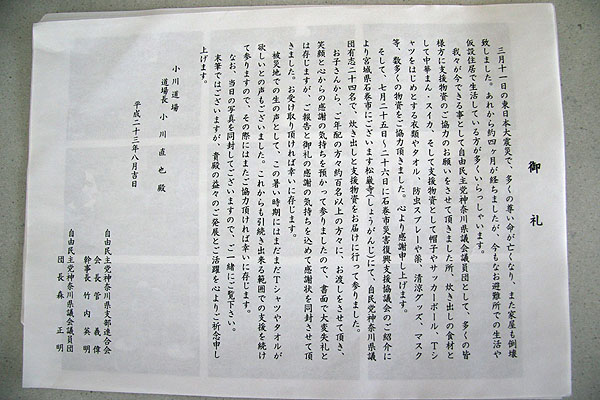 御礼
三月十一日の東日本大震災で、多くの尊い命が亡くなり、また家屋も倒壊
致しました。あれから約四ヶ月が経ちましたが、今もなお避難所での生活や
仮設住居で生活している方が多くいらっしゃいます。
我々が今できる事として自由民主党神奈川県議会議員団として、多くの皆
様方に支援物資のご協力のお願いをさせて頂きました所、炊き出しの食材と
して中華まん・スイカ、そして支援物資として帽子やサッカーボール、Tシ
ャツをはじめとする衣類やタオル、防虫スプレーや薬、清涼グッズ、マスク
等、数多くの物資をご協力頂きました。心より感謝申し上げます。
そして、七月二十五日～二十六日に石巻市災害復興支援協議会のご紹介に
より宮城県石巻市にございます松巌寺（しょうがんじ）にて、自民党神奈川県議
団有志二十四名で、炊き出しと支援物資をお届けに行って参りました。
お子さんから、ご年配の方々約百名以上の方々に、お渡しをさせて頂き、
笑顔と心からの感謝の気持ちを預かって参りましたので、書面で大変失礼と
は存じますが、ご報告と御礼の感謝の気持ちを込めて感謝状を同封させて頂
きました。お受け取り頂ければ幸いに存じます。
被災地での生の声として、この暑い時期にはまだまだTシャツやタオルが
欲しいとの声もございました。これからも引続き出来る範囲での支援を続け
て参りますので、その際にはまたご協力頂ければ幸いに存じます。
なお、当日の写真を同封してございますので、ご一緒にご覧下さい。
末筆ではございますが、貴殿の益々のご発展とご活躍を心よりご祈念申し
上げます。
平成二十三年八月吉日
小川道場
道場長 小川直也殿
自由民主党神奈川県支部連合会
会長 菅義偉
幹事長 竹内英明
自由民主党神奈川県議会議員団
団長 森正明